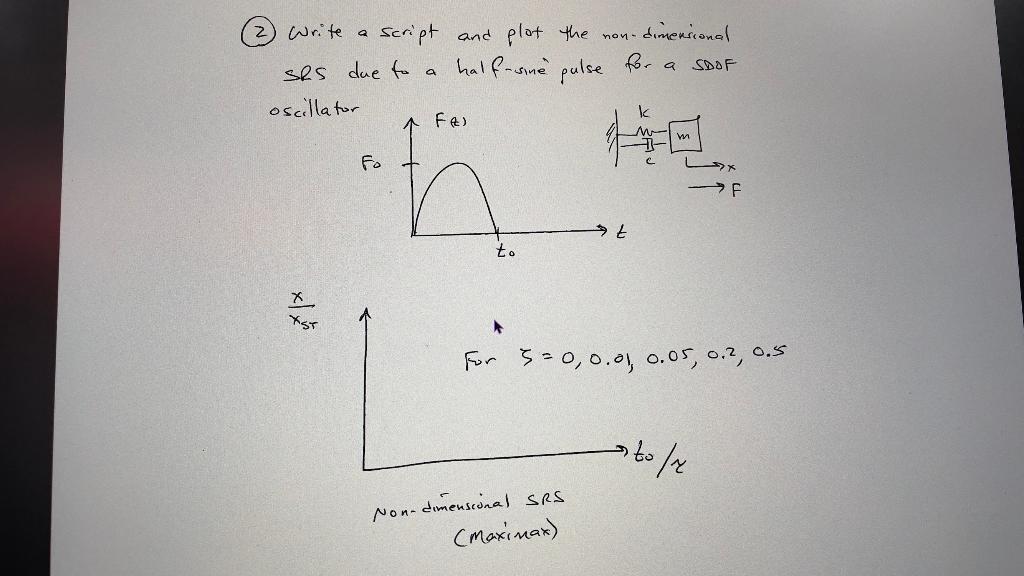 ② Write a script and plot the non-dimensional
SRS due to a half-sine pulse for a SDOF
oscillator
F(t)
k
m
c
x
F
F₀
t
t₀
x
xST
For ζ = 0, 0.01, 0.05, 0.2, 0.5
t₀/τ
Non-dimensional SRS
(Maximax)